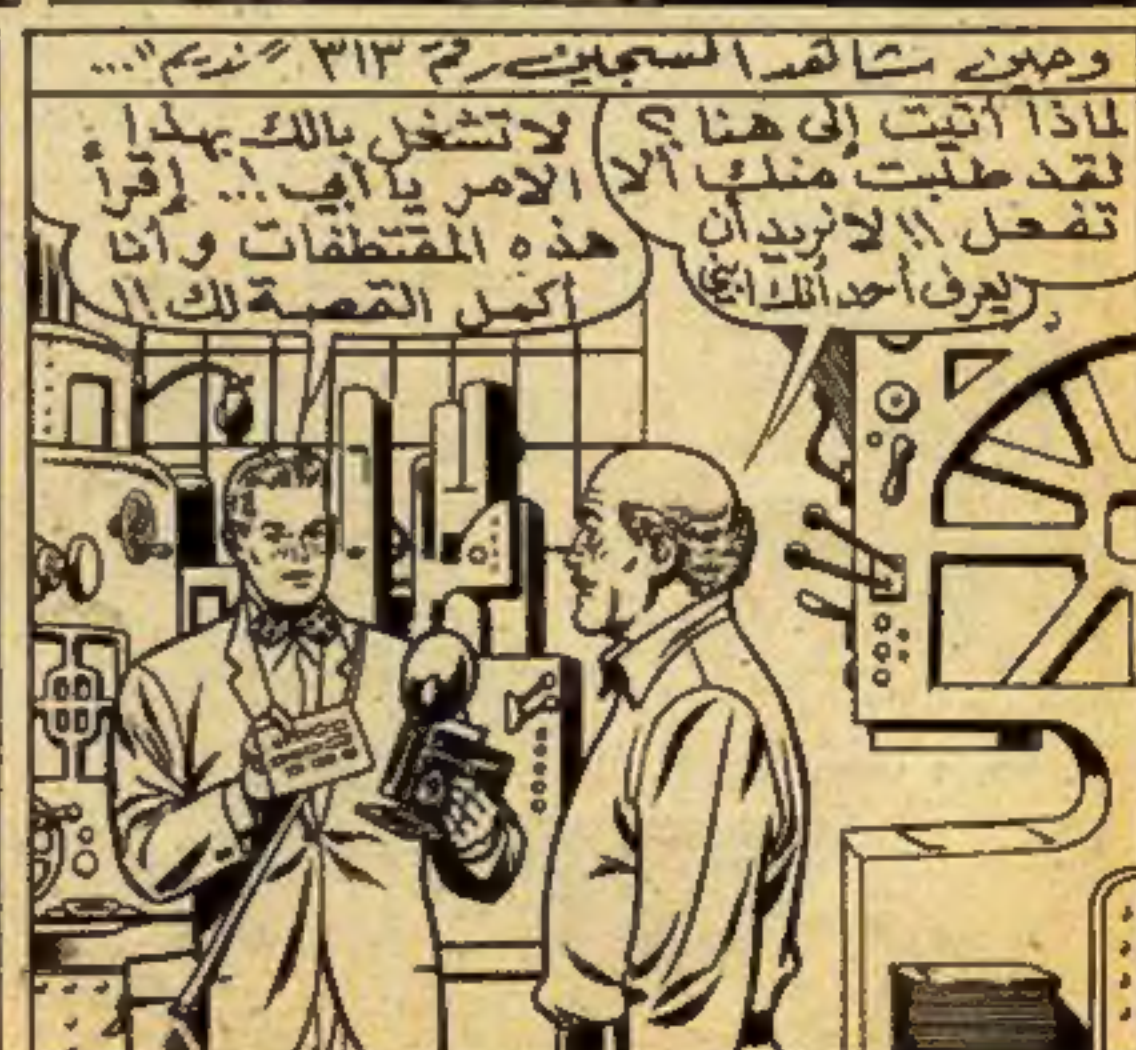 وحين شاهد السجين رقم ٣١٣ "نديم"...
لماذا أتيت إلى هنا ؟
لقد طلبت منك ألا
تفعل !! لا نريد أن
يعرف أحد أنك ابني
لا تشغل بالك بهذا
الامر يا أبي !.. إقرأ
هذه المقتطفات وأنا
أكمل القصة لك !!